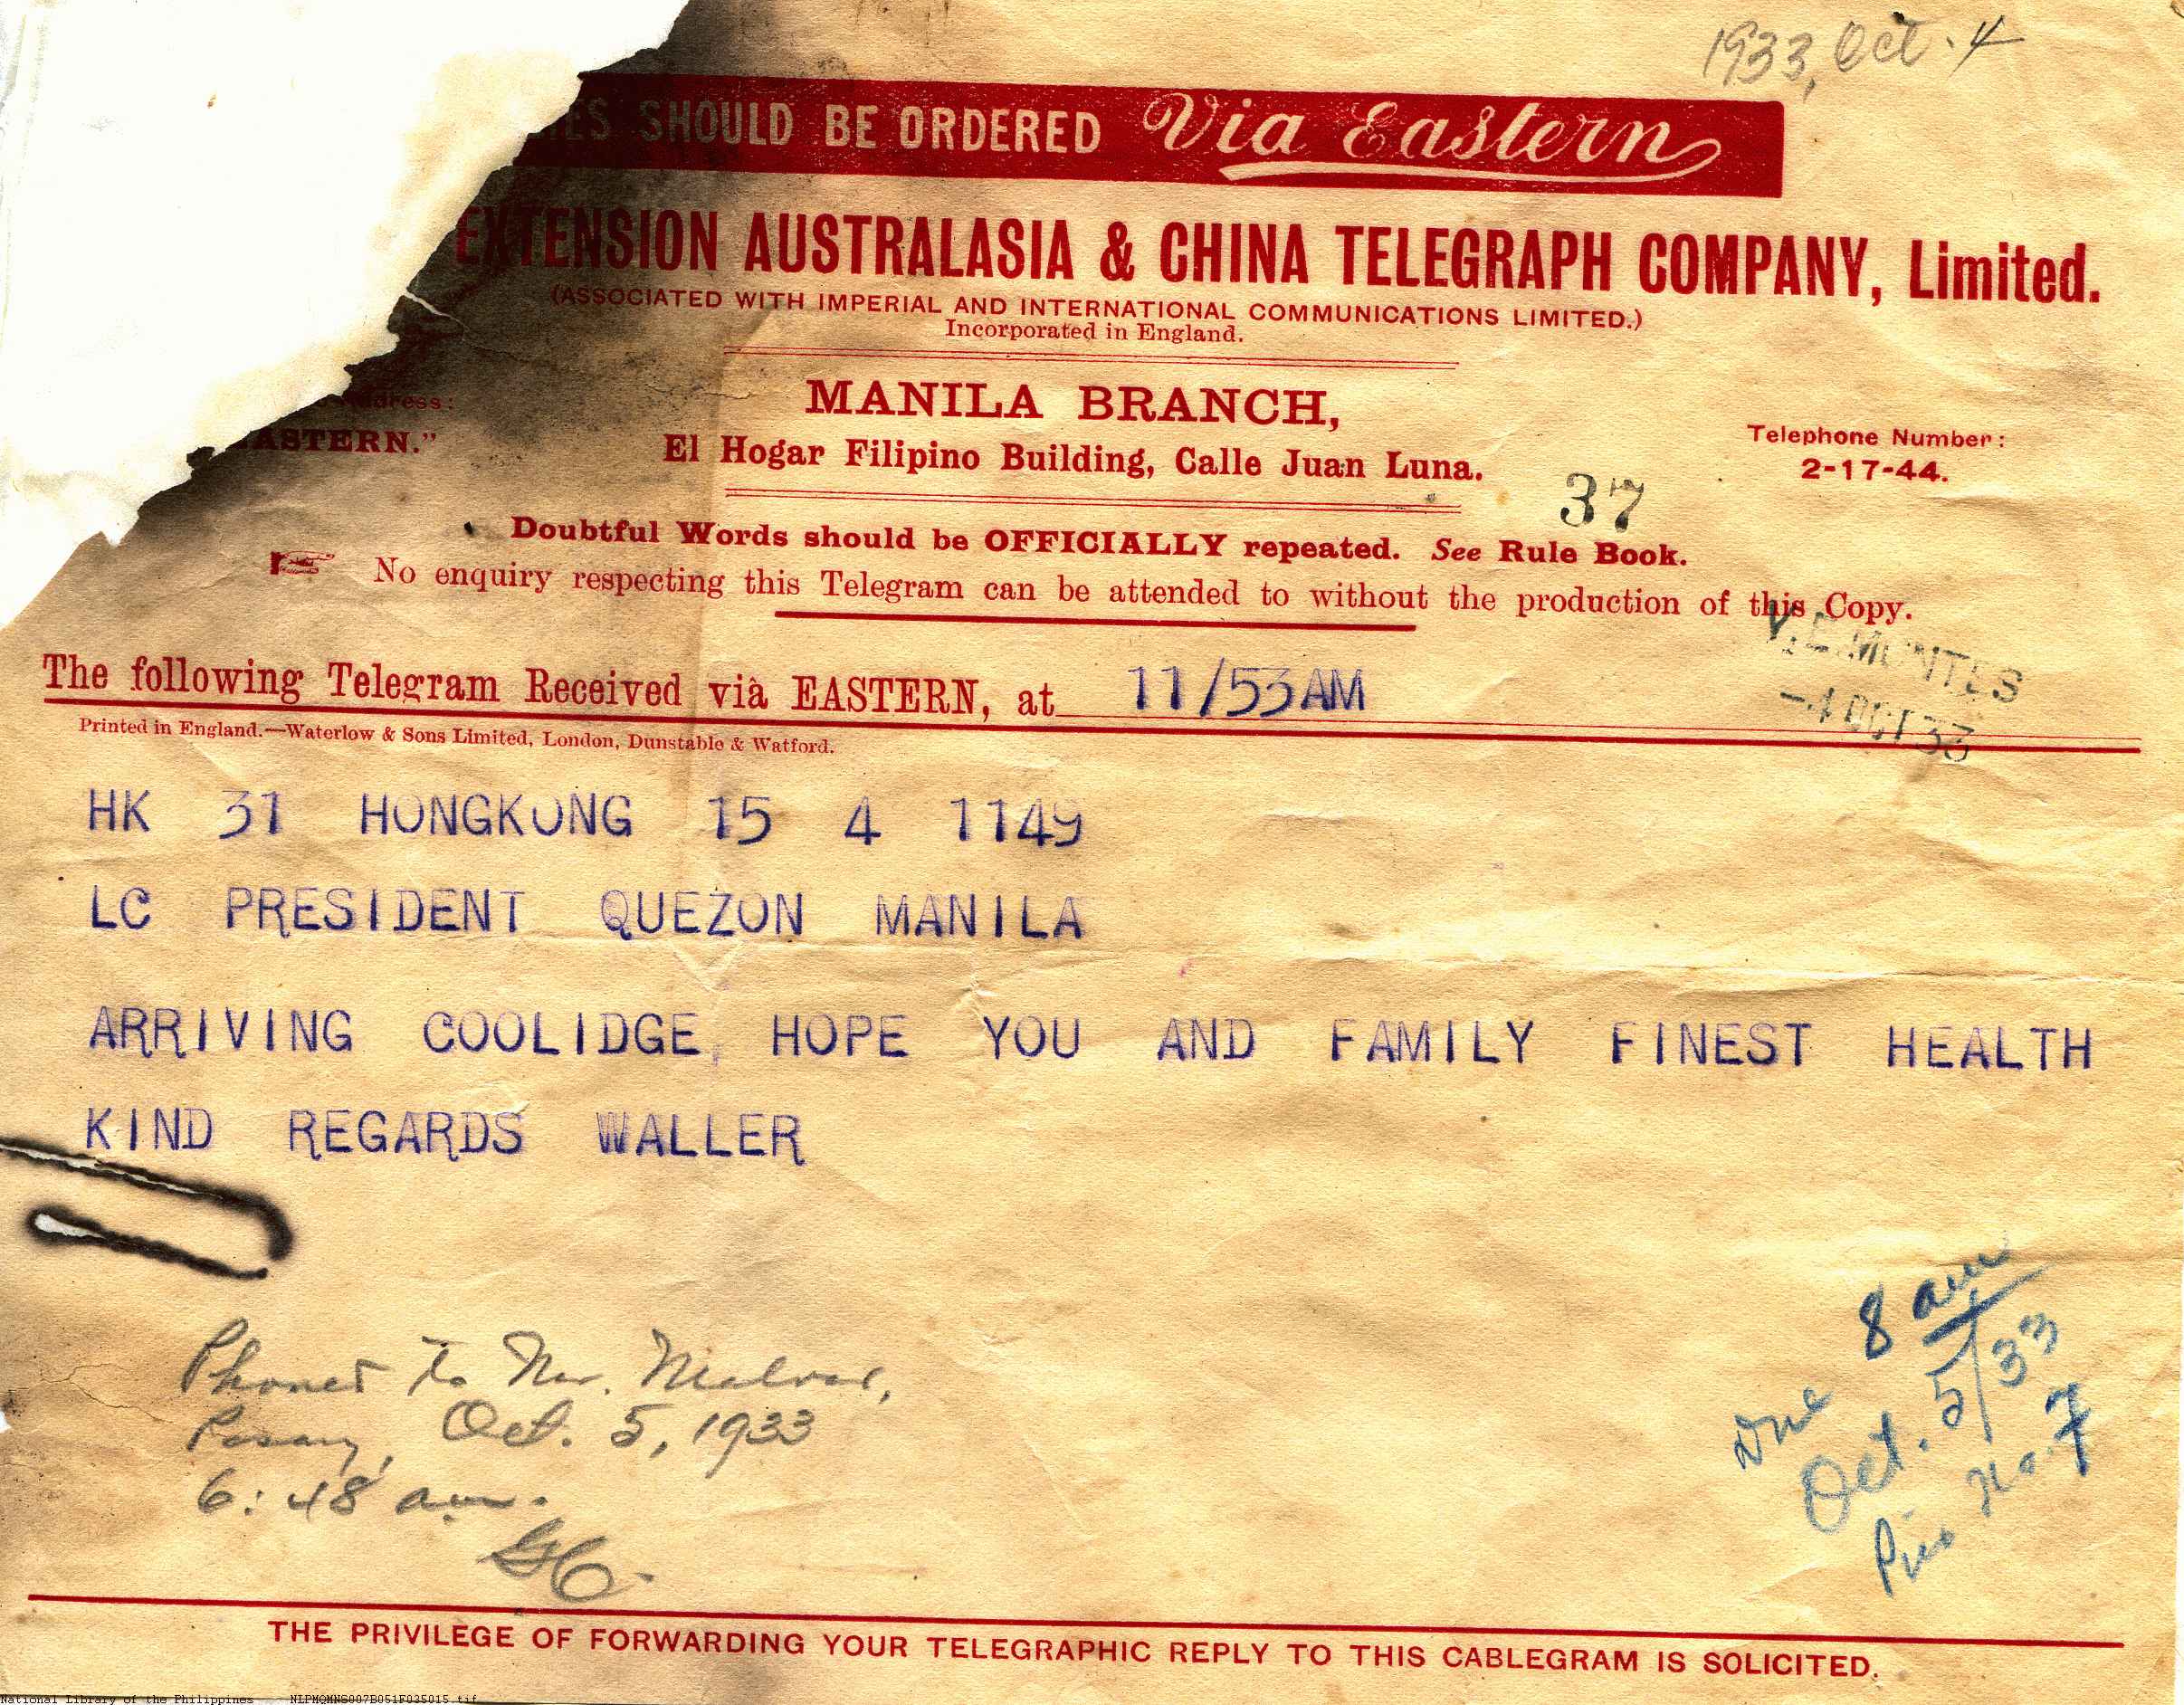 1933, Oct. 4
SHOULD BE ORDERED Via Eastern
EXTENSION AUSTRALASIA & CHINA TELEGRAPH COMPANY, Limited.
(ASSOCIATED WITH IMPERIAL AND INTERNATIONAL COMMUNICATIONS LIMITED.)
Incorporated in England.
MANILA BRANCH,
El Hogar Filipino Building, Calle Juan Luna.
Telephone Number:
2-17-44.
37
Doubtful Words should be OFFICIALLY repeated. See Rule Book.
No enquiry respecting this Telegram can be attended to without the production of this Copy.
-4 OCT 33
The following Telegram Received viâ EASTERN, at 11/53AM
Printed in England.—Waterlow & Sons Limited, London, Dunstable & Watford.
HK 31 HONGKONG 15 4 1149
LC PRESIDENT QUEZON MANILA
ARRIVING COOLIDGE HOPE YOU AND FAMILY FINEST HEALTH
KIND REGARDS WALLER
Phoned to Mr. Malvar,
Pasay, Oct. 5, 1933
6:48 am.
8 am
Due Oct. 5/33
Pier No. 7
THE PRIVILEGE OF FORWARDING YOUR TELEGRAPHIC REPLY TO THIS CABLEGRAM IS SOLICITED.
National Library of the Philippines NLPMQMNS007B051F035015.tif